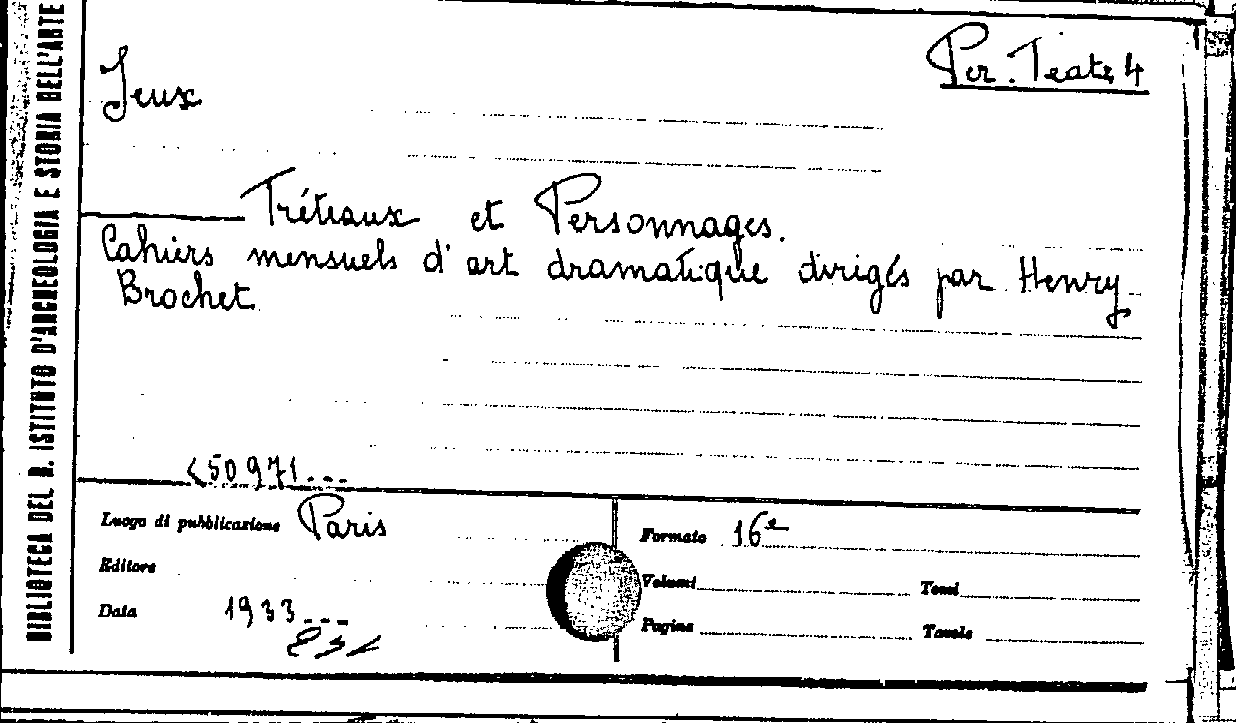 BIBLIOTECA DEL R. ISTITUTO D'ARCHEOLOGIA E STORIA DELL'ARTE
Per. Teatr. 4
Jeux
Tréteaux et Personnages.
Cahiers mensuels d'art dramatique dirigés par Henry
Brochet
50971...
Luogo di pubblicazione Paris
Editore
Data 1933...
Formato 16°
Volumi Tomi
Pagine Tavole